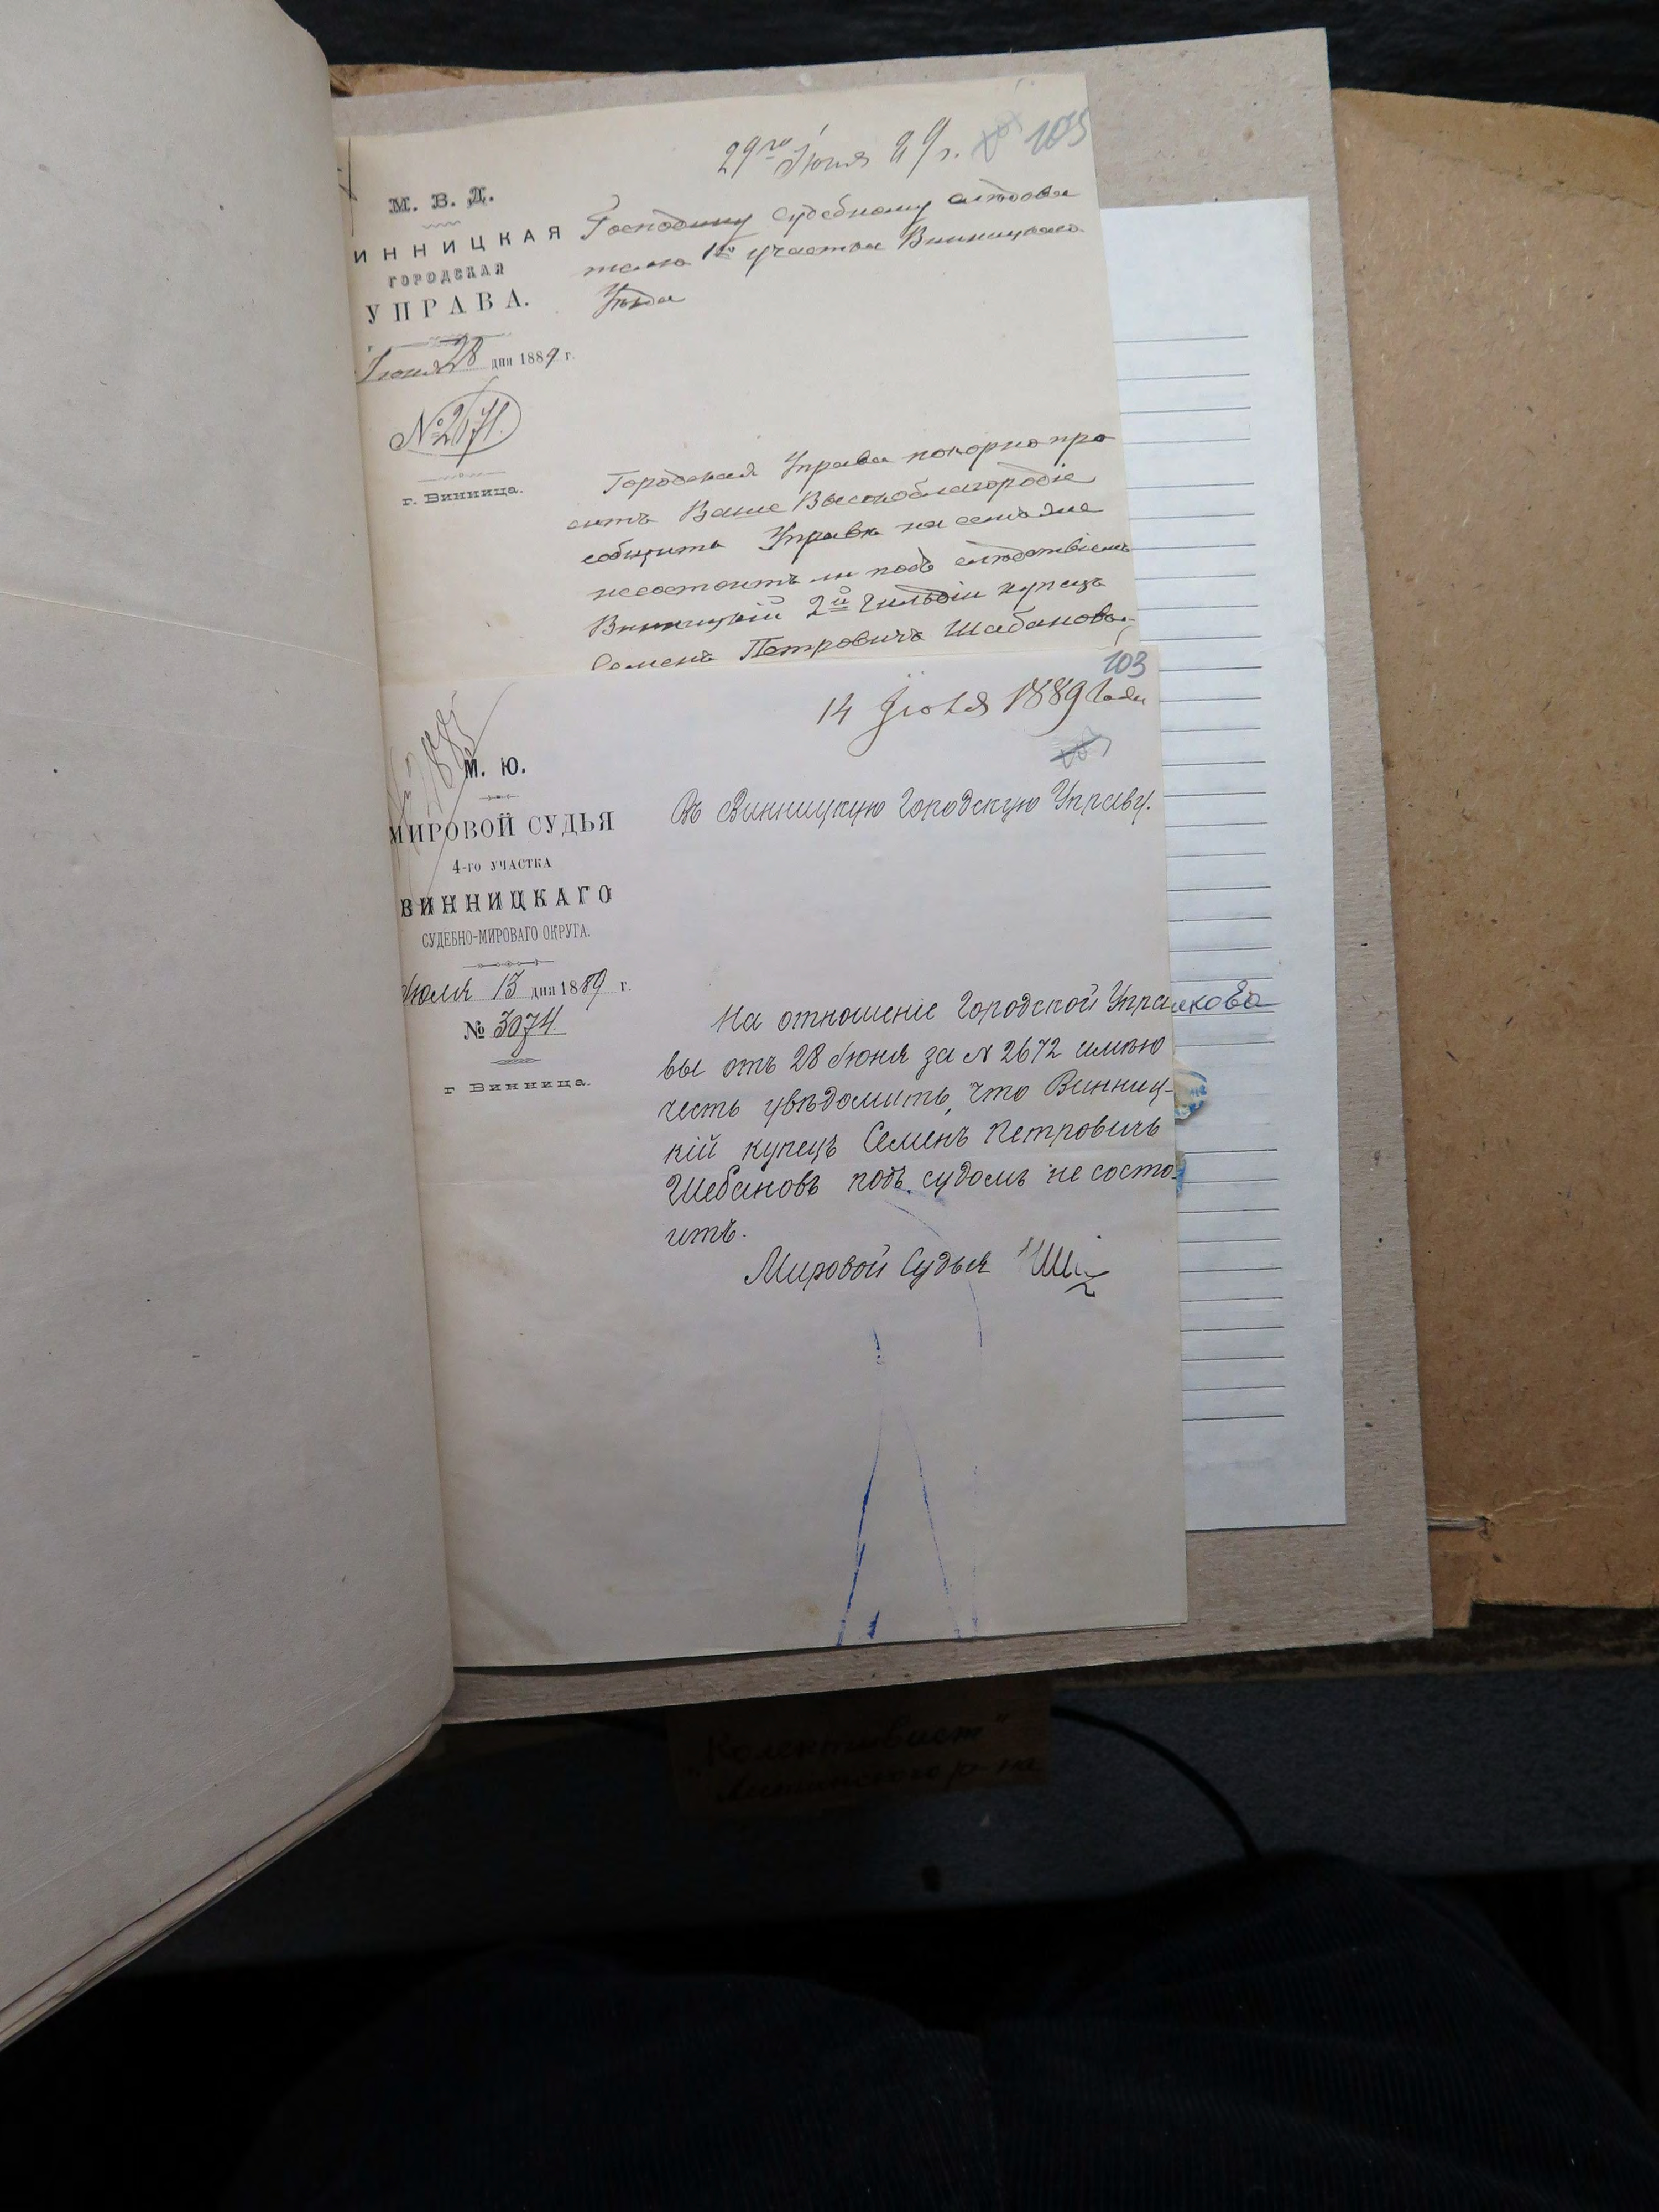 29го Іюня 89 г. 105
М. В. Д.
ИННИЦКАЯ
ГОРОДСКАЯ
УПРАВА.
Іюня 28 дня 1889 г.
№ 2671.
г. Винница.
Господину Судебному слѣдова
телю 1го участка Винницкаго
Уѣзда
Городская Управа покорно про
ситъ Ваше Высокоблагородіе
сообщить Управѣ на семъ же
несостоитъ ли подъ слѣдствіемъ
Винницкій 2й гильдіи купецъ
Семенъ Петровичъ Шабановъ,
103
14 Іюля 1889 Года
М. Ю.
МИРОВОЙ СУДЬЯ
4-го УЧАСТКА
ВИННИЦКАГО
СУДЕБНО-МИРОВАГО ОКРУГА.
Іюля 13 дня 1889 г.
№ 3074
г Винница.
Въ Винницкую Городскую Управу.
На отношеніе Городской Упра
вы отъ 28 Іюня за № 2672 имѣю
честь увѣдомить, что Винниц-
кій купецъ Семенъ Петровичъ
Шебановъ подъ судомъ не состо-
итъ.
Мировой Судья
кова
„Колективист"
р-на